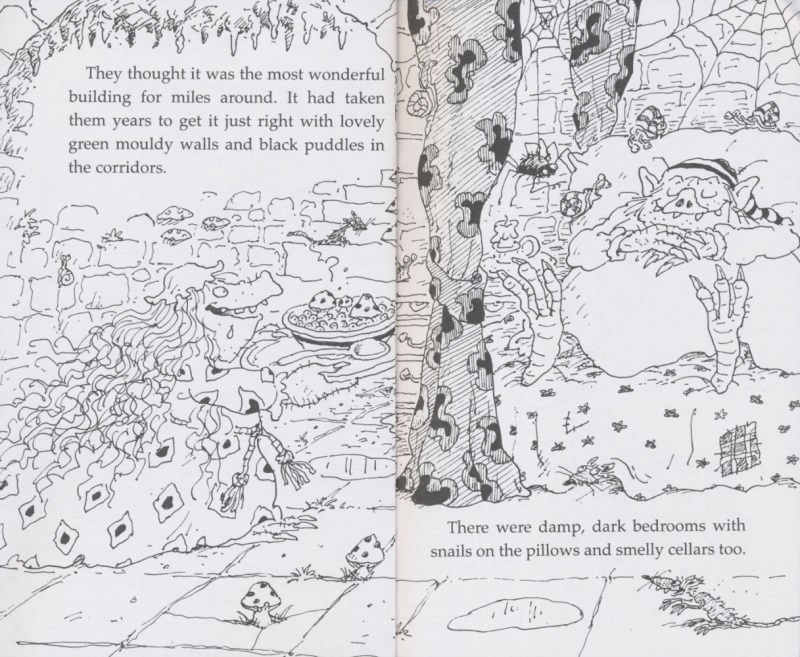 They thought it was the most wonderful
building for miles around. It had taken
them years to get it just right with lovely
green mouldy walls and black puddles in
the corridors.
There were damp, dark bedrooms with
snails on the pillows and smelly cellars too.